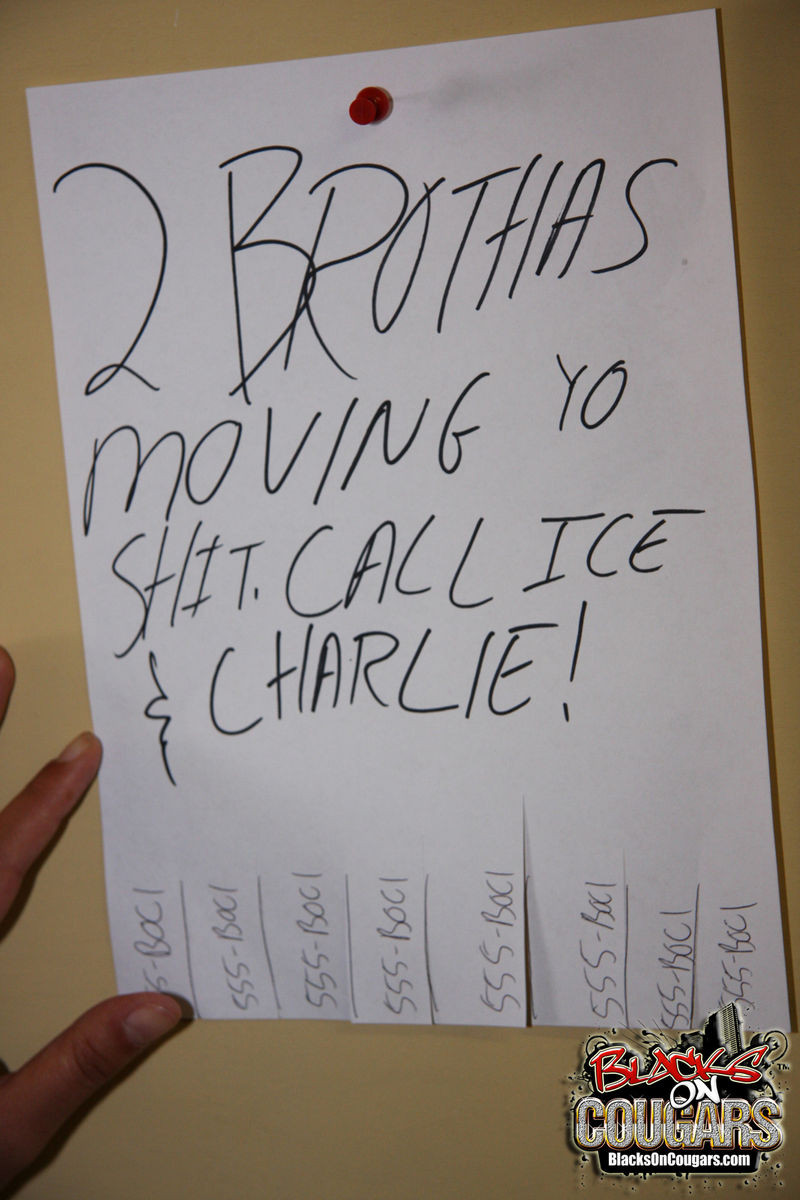 2 BROTHAS
MOVING YO
SHIT. CALL ICE
& CHARLIE!
5-BOC1
555-BOC1
555-BOC1
555-BOC1
555-BOC1
555-BOC1
555-BOC1
555-BOC1
BLACKS
ON
COUGARS
TM
BlacksOnCougars.com